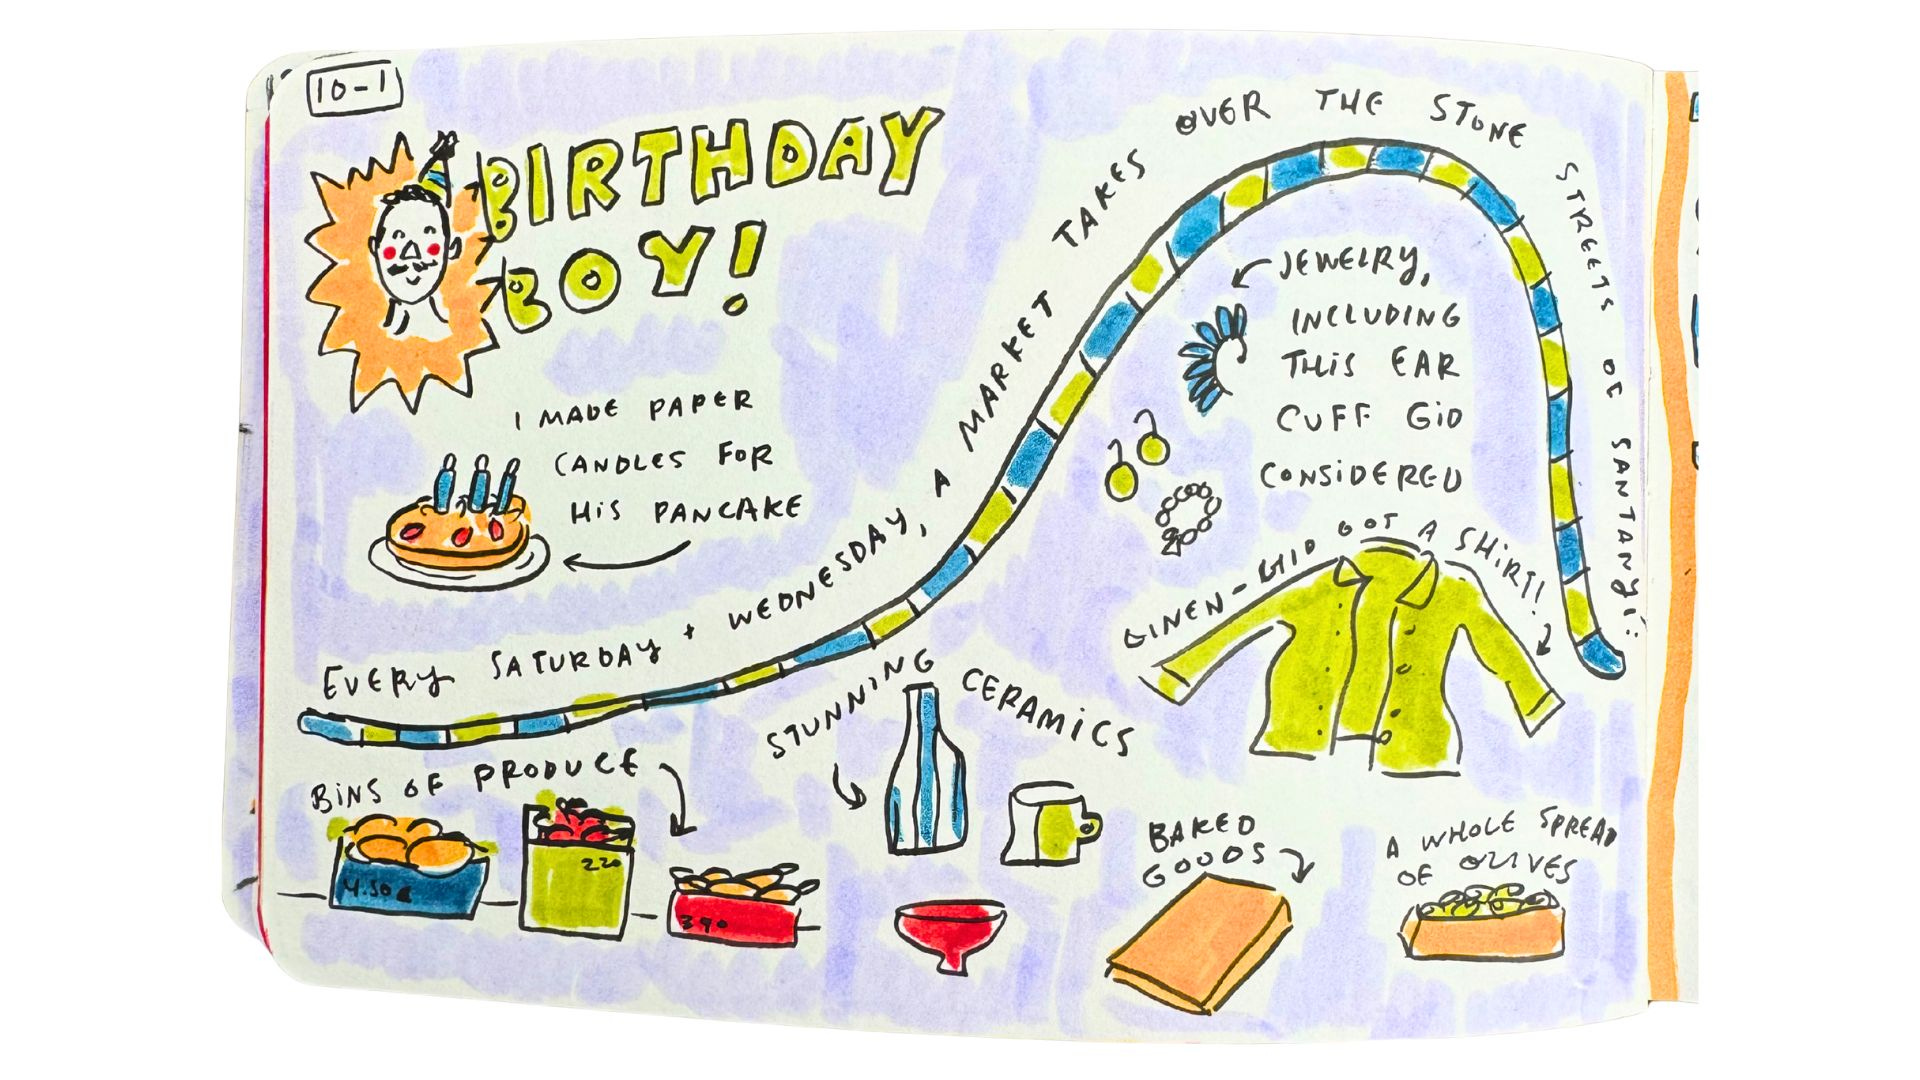 10-1
BIRTHDAY
BOY!
I MADE PAPER
CANDLES FOR
HIS PANCAKE
EVERY SATURDAY + WEDNESDAY, A MARKET TAKES OVER THE STONE STREETS OF SANTANYÍ:
JEWELRY,
INCLUDING
THIS EAR
CUFF GID
CONSIDERED
LINEN-GID GOT A SHIRT!
STUNNING CERAMICS
BINS OF PRODUCE
4.50€
220
390
BAKED
GOODS
A WHOLE SPREAD
OF OLIVES